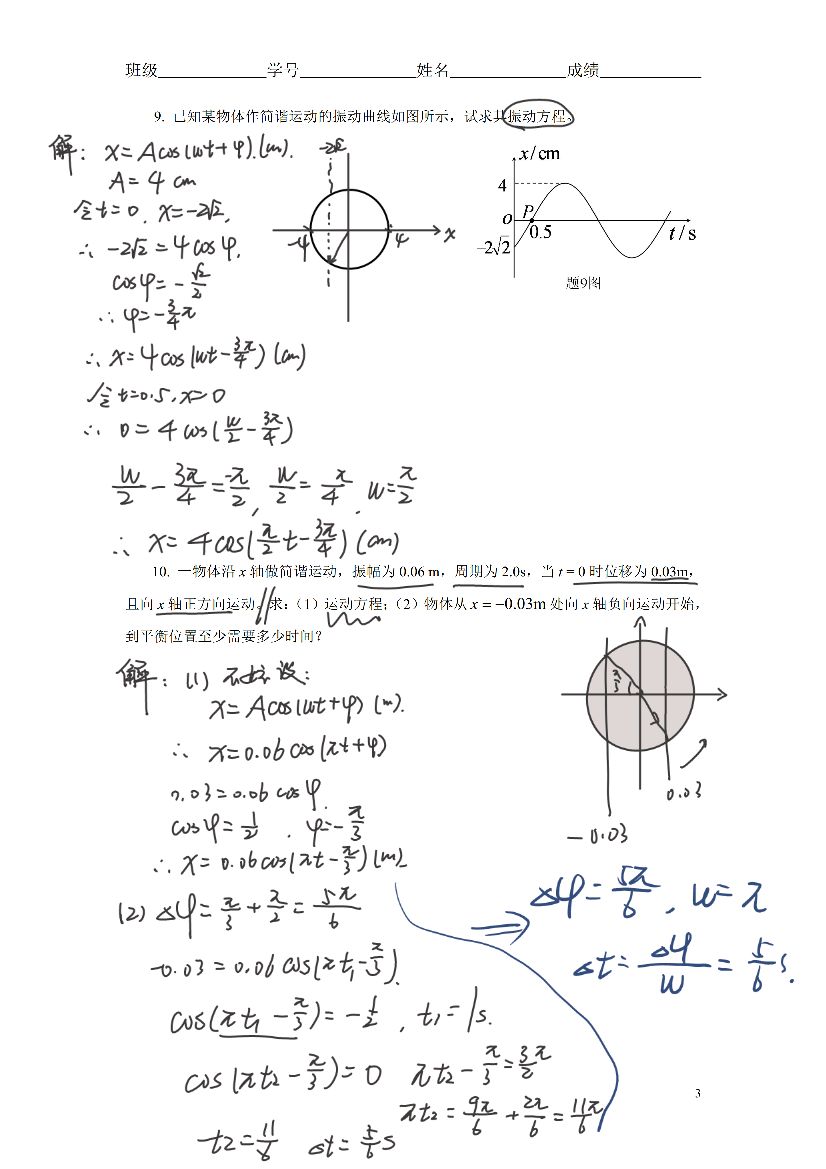 班级 学号 姓名 成绩
9. 已知某物体作简谐运动的振动曲线如图所示，试求其振动方程。
解： x=Acos(wt+φ).(m).
A=4 cm
令t=0. x=-2√2,
∴ -2√2=4cosφ,
cosφ=-√2/2
∴ φ=-3/4π
∴ x=4cos(wt-3π/4) (cm)
令t=0.5, x=0
∴ 0=4cos(w/2-3π/4)
w/2-3π/4=-π/2, w/2=π/4, w=π/2
∴ x=4cos(π/2t-3π/4) (cm)
-2√2
-4 4 x
x/cm
4
O P
0.5 t/s
-2√2
题9图
10. 一物体沿 x 轴做简谐运动，振幅为 0.06 m，周期为 2.0s，当 t = 0 时位移为 0.03m，
且向 x 轴正方向运动。求：（1）运动方程；（2）物体从 x = −0.03m 处向 x 轴负向运动开始，
到平衡位置至少需要多少时间？
解： (1)
设：
x=Acos(wt+φ) (m).
∴ x=0.06cos(πt+φ)
0.03=0.06cosφ.
cosφ=1/2 . φ=-π/3
∴ x=0.06cos(πt-π/3)(m)
π/3
0.03
-0.03
(2) Δφ=π/3+π/2=5π/6
-0.03=0.06cos(πt₁-π/3).
cos(πt₁-π/3)=-1/2 , t₁=1s.
cos(πt₂-π/3)=0 πt₂-π/3=3π/2
πt₂=9π/6+2π/6=11π/6
t₂=11/6 Δt=5/6s
⇒ Δφ=5π/6 , w=π
Δt=Δφ/w=5/6s.
3